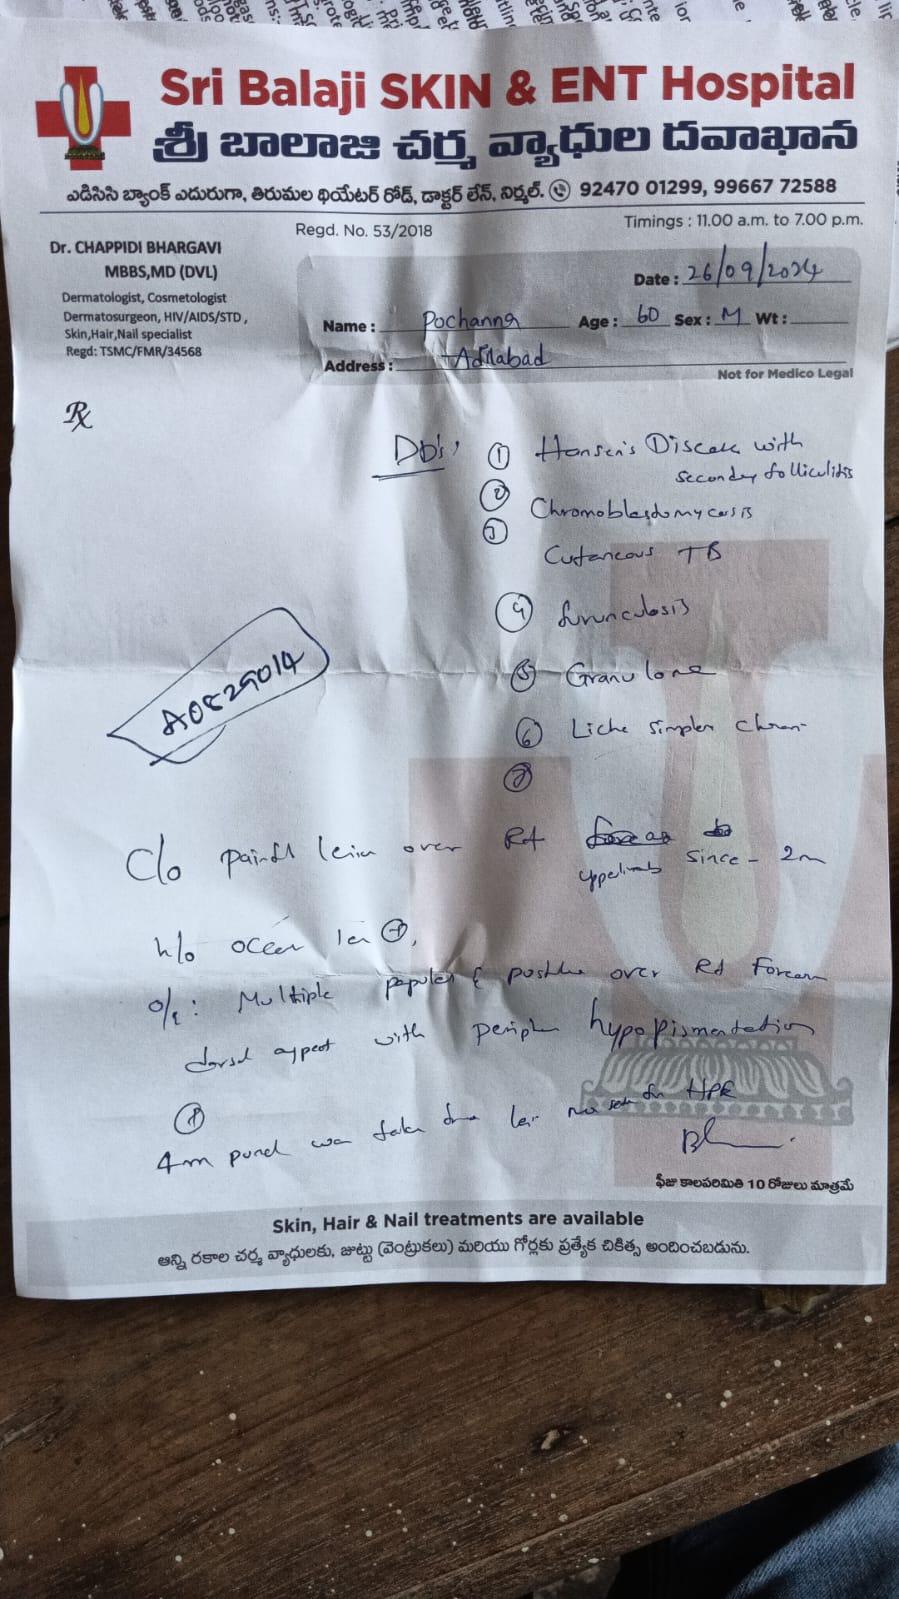 Sri Balaji SKIN & ENT Hospital
శ్రీ బాలాజి చర్మ వ్యాధుల దవాఖాన
ఎడిసిసి బ్యాంక్ ఎదురుగా, తిరుమల థియేటర్ రోడ్, డాక్టర్ లేన్, నిర్మల్. 92470 01299, 99667 72588
Regd. No. 53/2018
Timings : 11.00 a.m. to 7.00 p.m.
Dr. CHAPPIDI BHARGAVI
MBBS,MD (DVL)
Dermatologist, Cosmetologist
Dermatosurgeon, HIV/AIDS/STD ,
Skin,Hair,Nail specialist
Regd: TSMC/FMR/34568
Date : 26/09/2024
Name : Pochanna Age : 60 Sex : M Wt :
Address : Adilabad
Not for Medico Legal
Rx
DD's,
① Hansen's Disease with
secondary folliculitis
② Chromoblastomycosis
③
Cutaneous TB
④ furunculosis
⑤ Granuloma
⑥ Liche simplex chron
⑦
A0829014
C/o painful over Rt
upperlimb since - 2m
h/o ⊕,
O/E : Multiple papules & over Rt Forearm
dorsal aspect with periphe hypopigmentation
①
4mm punch was taken for HPE
ఫీజు కాలపరిమితి 10 రోజులు మాత్రమే
Skin, Hair & Nail treatments are available
అన్ని రకాల చర్మ వ్యాధులకు, జుట్టు (వెంట్రుకలు) మరియు గోర్లకు ప్రత్యేక చికిత్స అందించబడును.